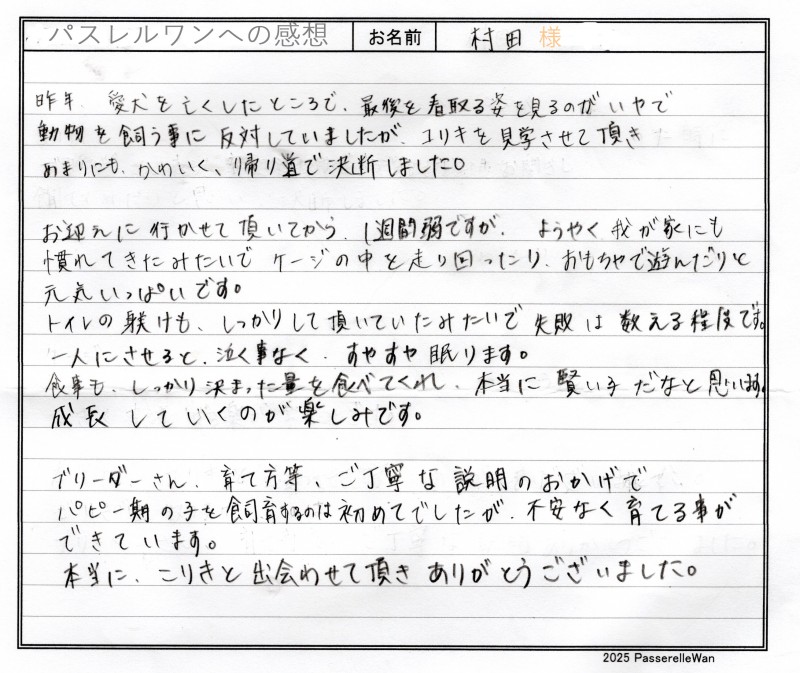 パスレルワンへの感想 お名前 村田 様
昨年、愛犬を亡くしたところで、最後を看取る姿を見るのがいやで
動物を飼う事に反対していましたが、コリキを見学させて頂き
あまりにも、かわいく、帰り道で決断しました。
お迎えに行かせて頂いてから、1週間弱ですが、ようやく我が家にも
慣れてきたみたいでケージの中を走り回ったり、おもちゃで遊んだりと
元気いっぱいです。
トイレの躾けも、しっかりして頂いていたみたいで失敗は数える程度です。
一人にさせると、泣く事なく、すやすや眠ります。
食事も、しっかり決まった量を食べてくれ、本当に賢い子だなと思います。
成長していくのが楽しみです。
ブリーダーさん、育て方等、ご丁寧な説明のおかげで
パピー期の子を飼育するのは初めてでしたが、不安なく育てる事が
できています。
本当に、こりきと出会わせて頂きありがとうございました。
2025 PasserelleWan